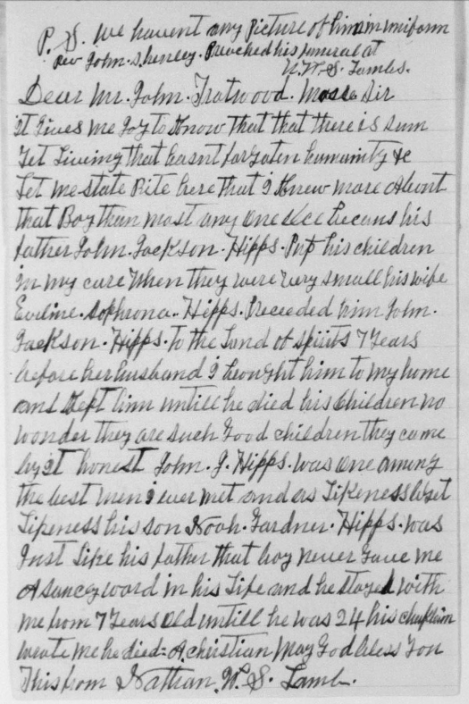 P. S. we havent any Picture of him in uniform
Rev John. Shenley. Preached his funeral at
N. W. S. Lambs.
Dear Mr. John. Trotwood. Moore Sir
it gives me Joy to Know that that there is sum
yet Living that hasnt forgoten humanity &c
Let me state Rite here that I Knew more About
that Boy than most any one else because his
father John. Jackson. Hipps. Put his children
in my care When they were very small his wife
Eveline. Sophrona. Hipps. Preceeded him John.
Jackson. Hipps. to the Land of spirits 7 years
before her husband I brought him to my home
and Kept him untill he died his Children no
wonder they are such Good children they came
by it honest John. J. Hipps. was one among
the best men I ever met and as Likeness
Likeness his son Noah. Gardner. Hipps. was
Just Like his father that boy never gave me
A saucy word in his Life and he stayed with
me from 7 years old untill he was 24 his
wrote me he died = A christian May God bless you
This from Nathan. W. S. Lamb.